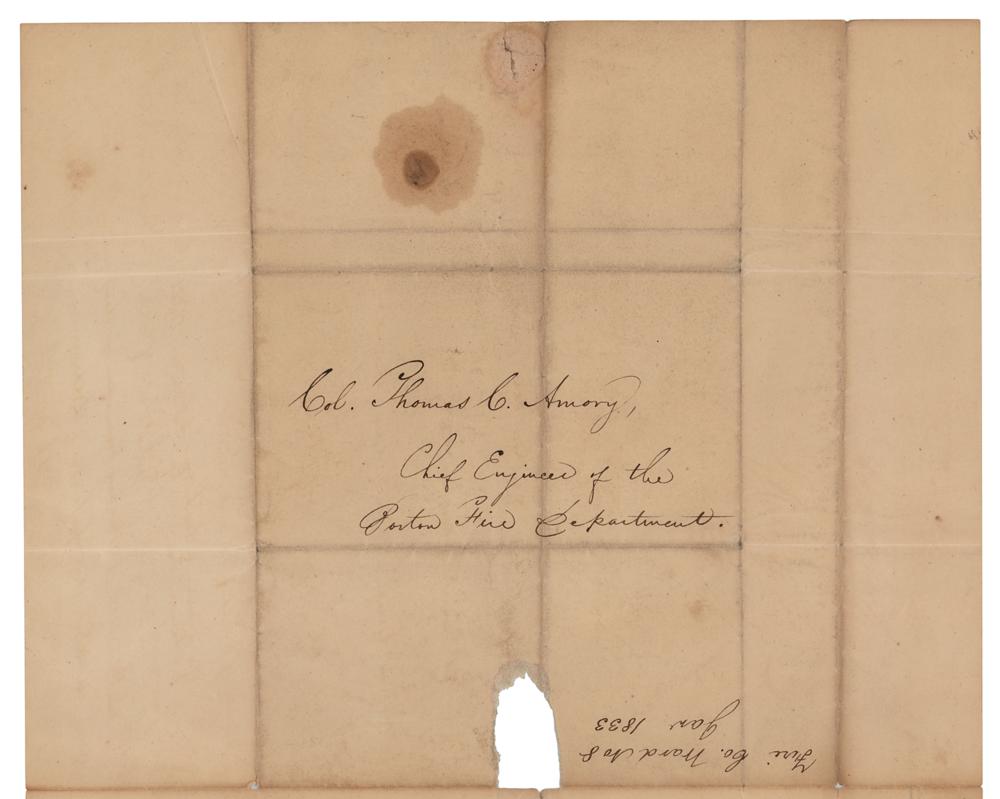 Col. Thomas C. Amory,
Chief Engineer of the
Boston Fire Department.
Fire Co. Ward No 8
Jan 1833